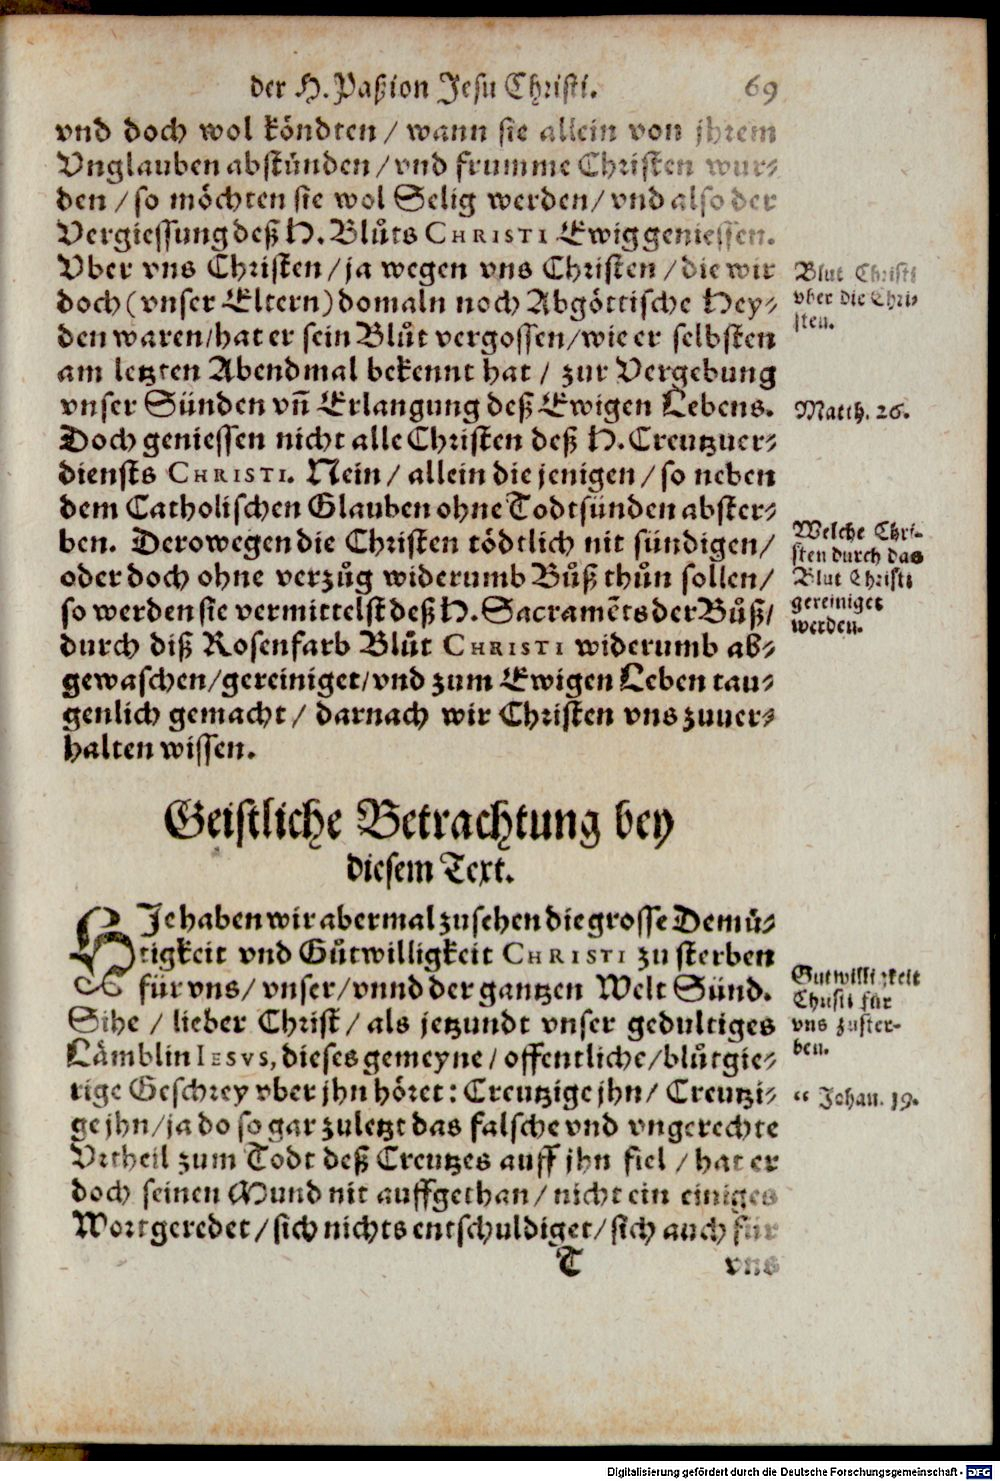 der H. Paßion Jesu Christi. 69
vnd doch wol köndten / wann sie allein von jhrem
Vnglauben abstünden / vnd frumme Christen wur-
den / so möchten sie wol Selig werden / vnd also der
Vergiessung deß H. Blůts CHRISTI Ewig geniessen.
Vber vns Christen / ja wegen vns Christen / die wir
doch (vnser Eltern) domaln noch Abgöttische Hey-
den waren / hat er sein Blůt vergossen / wie er selbsten
am letzten Abendmal bekennt hat / zur Vergebung
vnser Sünden vñ Erlangung deß Ewigen Lebens.
Doch geniessen nicht alle Christen deß H. Creutzuer-
diensts CHRISTI. Nein / allein die jenigen / so neben
dem Catholischen Glauben ohne Todtsünden abster-
ben. Derowegen die Christen tödtlich nit sündigen /
oder doch ohne verzůg widerumb Bůß thůn sollen /
so werden sie vermittelst deß H. Sacramẽts der Bůß /
durch diß Rosenfarb Blůt CHRISTI widerumb ab-
gewaschen / gereiniget / vnd zum Ewigen Leben tau-
genlich gemacht / darnach wir Christen vns zuuer-
halten wissen.
Blut Christi
vber die Chri-
sten.
Matth. 26.
Welche Chri-
sten durch das
Blut Christi
gereiniget
werden.
Geistliche Betrachtung bey
diesem Text.
HJe haben wir abermal zu sehen die grosse Demü-
tigkeit vnd Gůtwilligkeit CHRISTI zu sterben
für vns / vnser / vnnd der gantzen Welt Sünd.
Sihe / lieber Christ / als jetzundt vnser gedultiges
Lämblin IESVS, dieses gemeyne / offentliche / blůtgie-
rige Geschrey vber jhn höret: Creutzige jhn / Creutzi-
ge jhn / ja do so gar zuletzt das falsche vnd vngerechte
Vrtheil zum Todt deß Creutzes auff jhn fiel / hat er
doch seinen Mund nit auffgethan / nicht ein einiges
Wort geredet / sich nichts entschuldiget / sich auch für
Gutwilligkeit
Christi für
vns zuster-
ben.
“ Johan. 19.
T vns
Digitalisierung gefördert durch die Deutsche Forschungsgemeinschaft - DFG